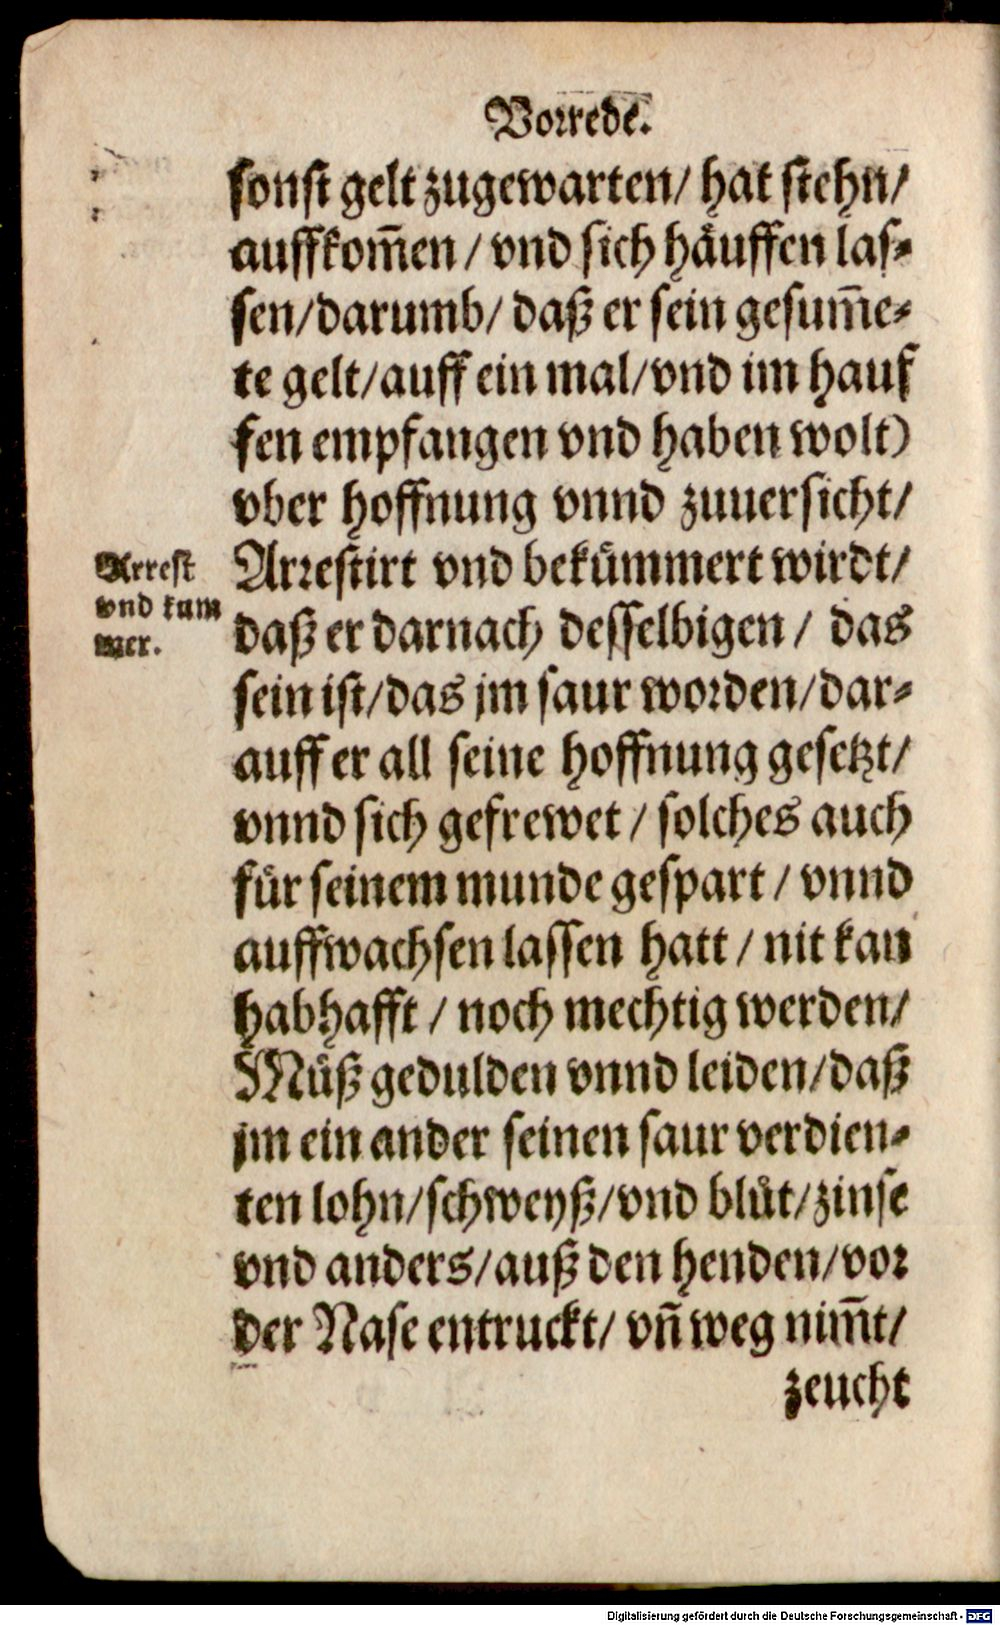 Vorrede.
sonst gelt zugewarten/ hat stehn/
auffkom̃en / vnd sich häuffen las⸗
sen/darumb/ daß er sein gesum̃e⸗
te gelt/auff ein mal/vnd im hauf
fen empfangen vnd haben wolt)
vber hoffnung vnnd zuuersicht/
Arrest
vnd kum
mer.
Arrestirt vnd bekümmert wirdt/
daß er darnach desselbigen / das
sein ist/das jm saur worden/dar⸗
auff er all seine hoffnung gesetzt/
vnnd sich gefrewet / solches auch
für seinem munde gespart / vnnd
auffwachsen lassen hatt / nit kan
habhafft / noch mechtig werden/
Müß gedulden vnnd leiden/daß
jm ein ander seinen saur verdien⸗
ten lohn/schweyß/vnd blůt/zinse
vnd anders/auß den henden/vor
der Nase entruckt/ vñ weg nim̃t/
zeucht
Digitalisierung gefördert durch die Deutsche Forschungsgemeinschaft - DFG